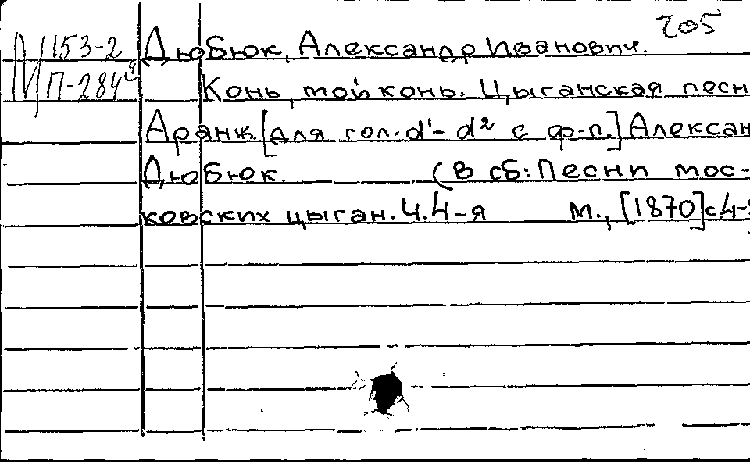 205
153-2 Дюбюк, Александр Иванович.
П-284 Конь, мой конь. Цыганская песн
Аранж. [для гол. d¹- d² с ф-п.] Алексан
Дюбюк. (В сб: Песни мос-
ковских цыган. Ч. 4-я М., [1870] с.4-